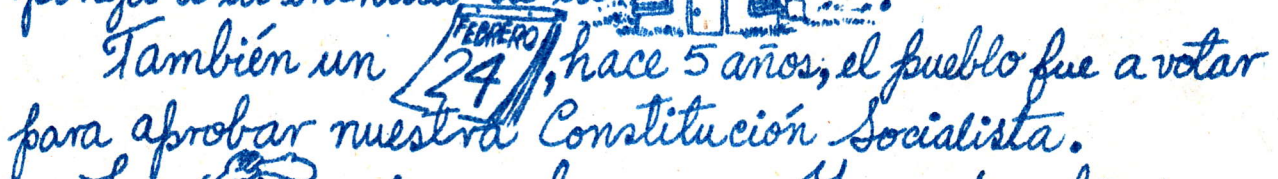 También un FEBRERO 24, hace 5 años, el pueblo fue a votar
para aprobar nuestra Constitución Socialista.